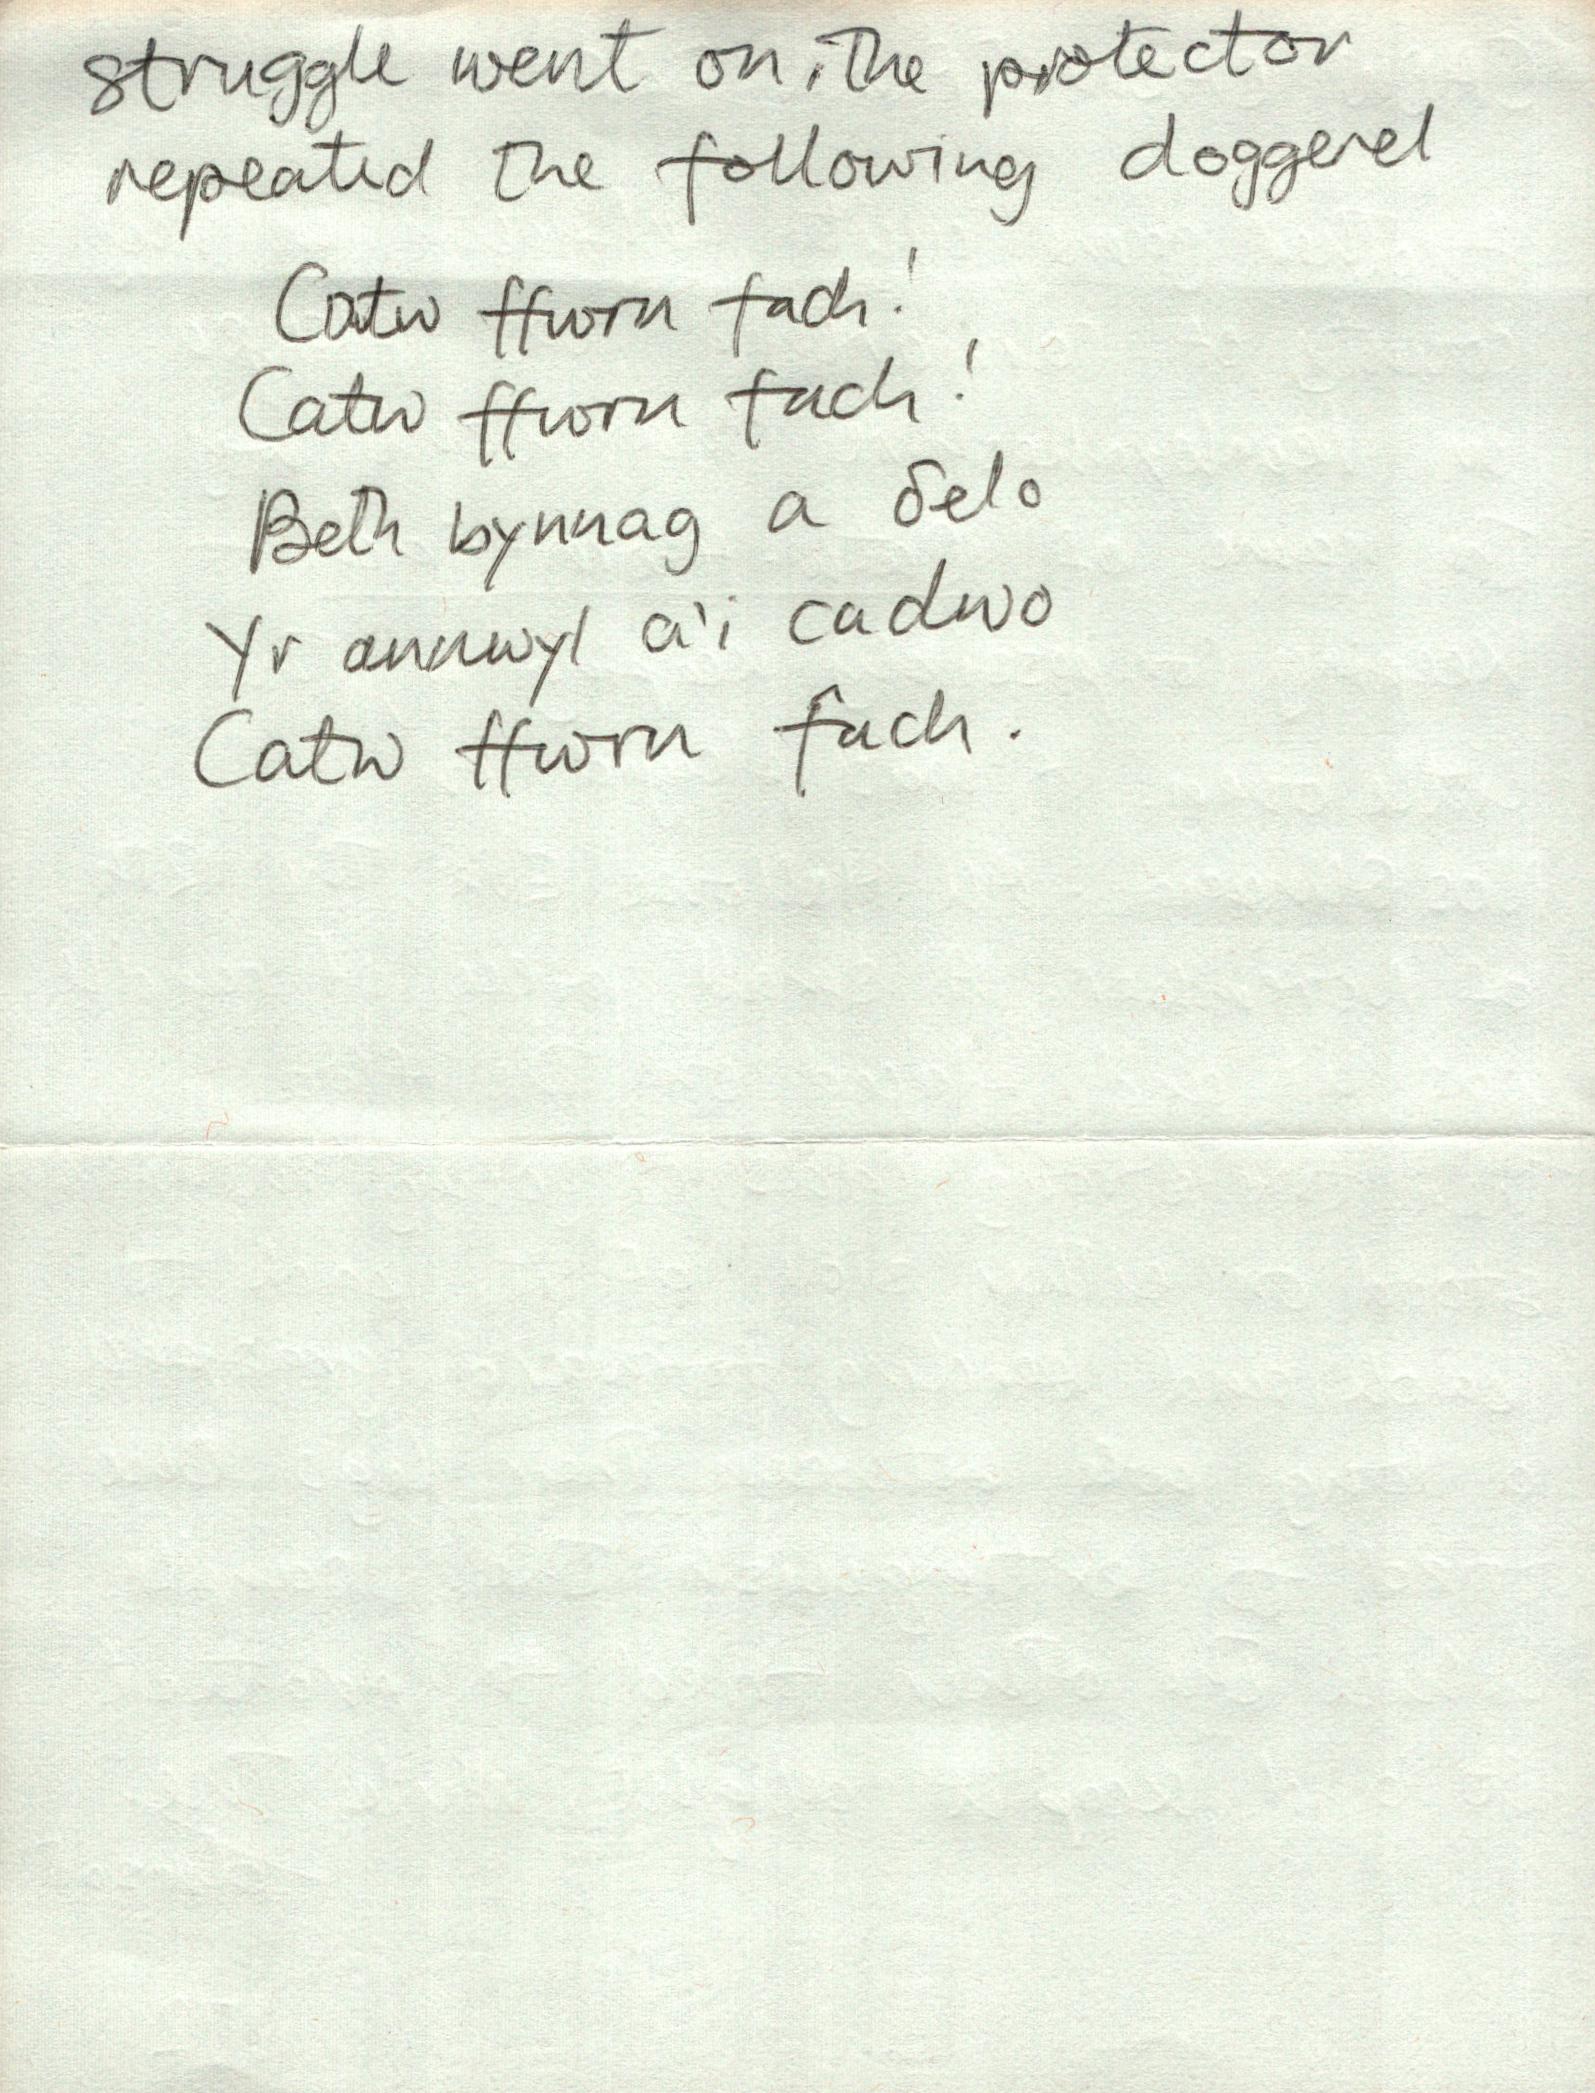 struggle went on, the protector
repeated the following doggerel
Catw ffwrn fach!
Catw ffwrn fach!
Beth bynnag a δelo
Yr annwyl a'i cadwo
Catw ffwrn fach.